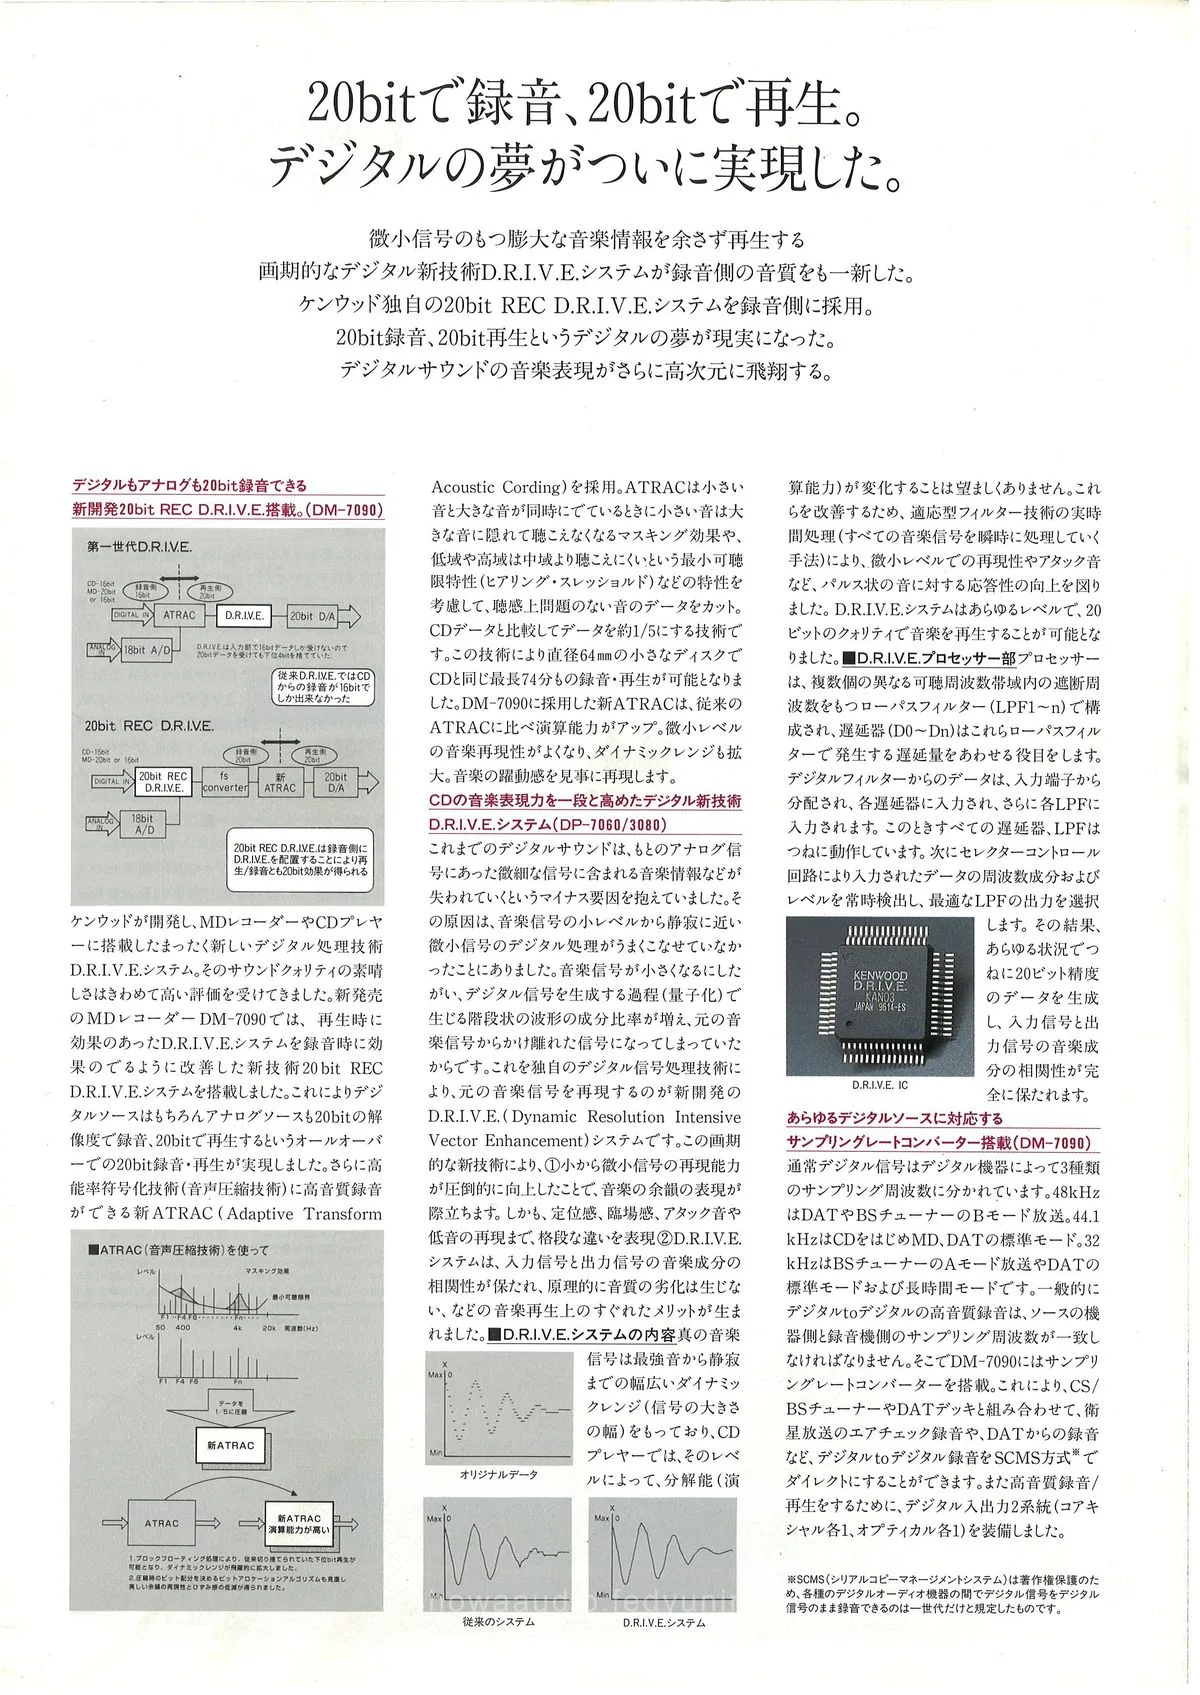 20bitで録音、20bitで再生。
デジタルの夢がついに実現した。
微小信号のもつ膨大な音楽情報を余さず再生する
画期的なデジタル新技術D.R.I.V.E.システムが録音側の音質をも一新した。
ケンウッド独自の20bit REC D.R.I.V.E.システムを録音側に採用。
20bit録音、20bit再生というデジタルの夢が現実になった。
デジタルサウンドの音楽表現がさらに高次元に飛翔する。
デジタルもアナログも20bit録音できる
新開発20bit REC D.R.I.V.E.搭載。(DM-7090)
第一世代D.R.I.V.E.
CD-16bit
MD-20bit
or 16bit
録音側
16bit
再生側
20bit
DIGITAL IN
ATRAC
D.R.I.V.E.
20bit D/A
ANALOG
IN
18bit A/D
D.R.I.V.E.は入力部で16bitデータしか受けないので
20bitデータを受けても下位4bitを捨てていた。
従来D.R.I.V.E.ではCD
からの録音が16bitで
しか出来なかった
20bit REC D.R.I.V.E.
CD-16bit
MD-20bit or 16bit
録音側
20bit
再生側
20bit
DIGITAL IN
20bit REC
D.R.I.V.E.
fs
converter
新
ATRAC
20bit
D/A
ANALOG
IN
18bit
A/D
20bit REC D.R.I.V.E.は録音側に
D.R.I.V.E.を配置することにより再
生/録音とも20bit効果が得られる
ケンウッドが開発し、MDレコーダーやCDプレヤ
ーに搭載したまったく新しいデジタル処理技術
D.R.I.V.E.システム。そのサウンドクォリティの素晴
しさはきわめて高い評価を受けてきました。新発売
のMDレコーダーDM-7090では、再生時に
効果のあったD.R.I.V.E.システムを録音時に効
果のでるように改善した新技術20bit REC
D.R.I.V.E.システムを搭載しました。これによりデジ
タルソースはもちろんアナログソースも20bitの解
像度で録音、20bitで再生するというオールオーバ
ーでの20bit録音・再生が実現しました。さらに高
能率符号化技術(音声圧縮技術)に高音質録音
ができる新ATRAC(Adaptive Transform
■ATRAC(音声圧縮技術)を使って
レベル
マスキング効果
最小可聴限界
F1 F4 F8 Fn
50 400 4k 20k 周波数(Hz)
レベル
F1 F4 F8 Fn
データを
1/5に圧縮
新ATRAC
ATRAC
新ATRAC
演算能力が高い
1.ブロックフローティング処理により、従来切り捨てられていた下位bit再生が
可能となり、ダイナミックレンジが飛躍的に拡大しました。
2.圧縮時のビット配分を決めるビットアロケーションアルゴリズムも見直し
美しい余韻の再現性とひずみ感の低減が得られました。
Acoustic Cording)を採用。ATRACは小さい
音と大きな音が同時にでているときに小さい音は大
きな音に隠れて聴こえなくなるマスキング効果や、
低域や高域は中域より聴こえにくいという最小可聴
限特性(ヒアリング・スレッショルド)などの特性を
考慮して、聴感上問題のない音のデータをカット。
CDデータと比較してデータを約1/5にする技術で
す。この技術により直径64㎜の小さなディスクで
CDと同じ最長74分もの録音・再生が可能となりま
した。DM-7090に採用した新ATRACは、従来の
ATRACに比べ演算能力がアップ。微小レベル
の音楽再現性がよくなり、ダイナミックレンジも拡
大。音楽の躍動感を見事に再現します。
CDの音楽表現力を一段と高めたデジタル新技術
D.R.I.V.E.システム(DP-7060/3080)
これまでのデジタルサウンドは、もとのアナログ信
号にあった微細な信号に含まれる音楽情報などが
失われていくというマイナス要因を抱えていました。そ
の原因は、音楽信号の小レベルから静寂に近い
微小信号のデジタル処理がうまくこなせていなか
ったことにありました。音楽信号が小さくなるにした
がい、デジタル信号を生成する過程(量子化)で
生じる階段状の波形の成分比率が増え、元の音
楽信号からかけ離れた信号になってしまっていた
からです。これを独自のデジタル信号処理技術に
より、元の音楽信号を再現するのが新開発の
D.R.I.V.E.(Dynamic Resolution Intensive
Vector Enhancement)システムです。この画期
的な新技術により、①小から微小信号の再現能力
が圧倒的に向上したことで、音楽の余韻の表現が
際立ちます。しかも、定位感、臨場感、アタック音や
低音の再現まで、格段な違いを表現②D.R.I.V.E.
システムは、入力信号と出力信号の音楽成分の
相関性が保たれ、原理的に音質の劣化は生じな
い、などの音楽再生上のすぐれたメリットが生ま
れました。■D.R.I.V.E.システムの内容真の音楽
信号は最強音から静寂
までの幅広いダイナミッ
クレンジ(信号の大きさ
の幅)をもっており、CD
プレヤーでは、そのレベ
ルによって、分解能(演
X
Max 0
Min
オリジナルデータ
X
Max 0
Min
従来のシステム
X
Max 0
Min
D.R.I.V.E.システム
算能力)が変化することは望ましくありません。これ
らを改善するため、適応型フィルター技術の実時
間処理(すべての音楽信号を瞬時に処理していく
手法)により、微小レベルでの再現性やアタック音
など、パルス状の音に対する応答性の向上を図り
ました。D.R.I.V.E.システムはあらゆるレベルで、20
ビットのクォリティで音楽を再生することが可能とな
りました。■D.R.I.V.E.プロセッサー部プロセッサー
は、複数個の異なる可聴周波数帯域内の遮断周
波数をもつローパスフィルター(LPF1〜n)で構
成され、遅延器(D0〜Dn)はこれらローパスフィル
ターで発生する遅延量をあわせる役目をします。
デジタルフィルターからのデータは、入力端子から
分配され、各遅延器に入力され、さらに各LPFに
入力されます。このときすべての遅延器、LPFは
つねに動作しています。次にセレクターコントロール
回路により入力されたデータの周波数成分および
レベルを常時検出し、最適なLPFの出力を選択
します。その結果、
あらゆる状況でつ
ねに20ビット精度
のデータを生成
し、入力信号と出
力信号の音楽成
分の相関性が完
全に保たれます。
KENWOOD
D.R.I.V.E.
KAN03
JAPAN 9614-ES
D.R.I.V.E. IC
あらゆるデジタルソースに対応する
サンプリングレートコンバーター搭載(DM-7090)
通常デジタル信号はデジタル機器によって3種類
のサンプリング周波数に分かれています。48kHz
はDATやBSチューナーのBモード放送。44.1
kHzはCDをはじめMD、DATの標準モード。32
kHzはBSチューナーのAモード放送やDATの
標準モードおよび長時間モードです。一般的に
デジタルtoデジタルの高音質録音は、ソースの機
器側と録音機側のサンプリング周波数が一致し
なければなりません。そこでDM-7090にはサンプリ
ングレートコンバーターを搭載。これにより、CS/
BSチューナーやDATデッキと組み合わせて、衛
星放送のエアチェック録音や、DATからの録音
など、デジタルtoデジタル録音をSCMS方式※で
ダイレクトにすることができます。また高音質録音/
再生をするために、デジタル入出力2系統(コアキ
シャル各1、オプティカル各1)を装備しました。
※SCMS(シリアルコピーマネージメントシステム)は著作権保護のた
め、各種のデジタルオーディオ機器の間でデジタル信号をデジタル
信号のまま録音できるのは一世代だけと規定したものです。